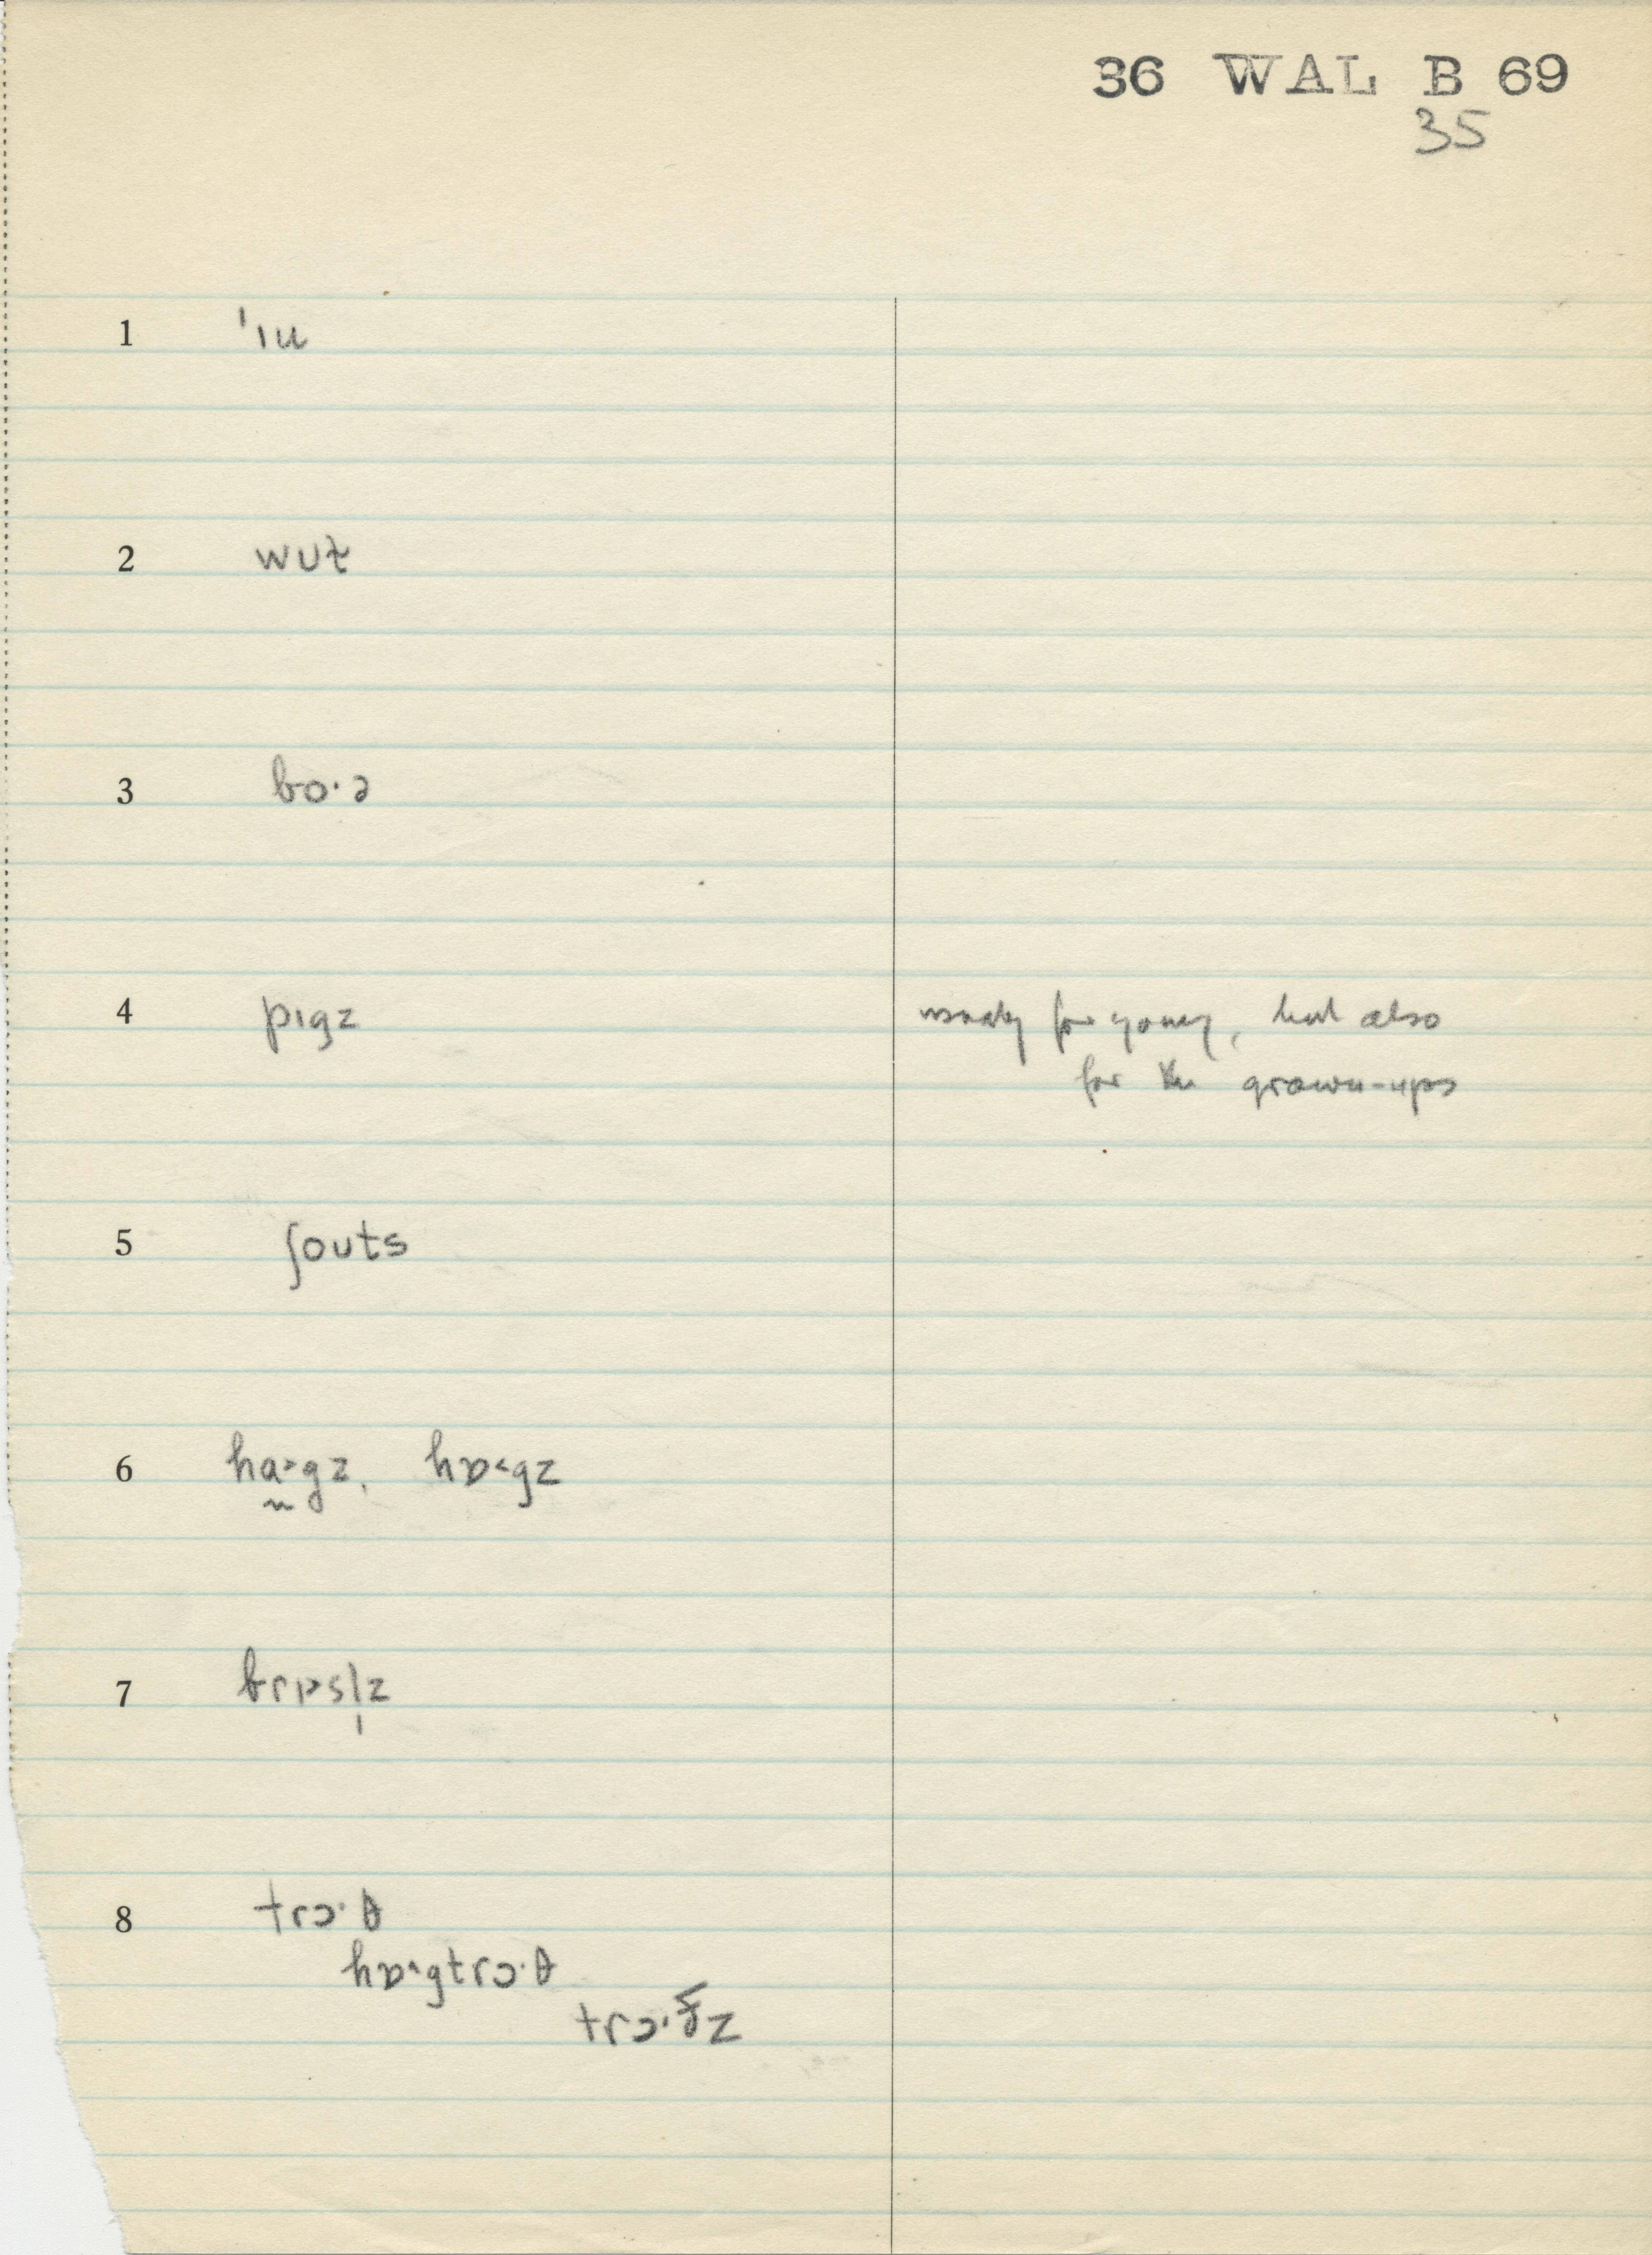 36 WAL B 69
35
1 ˈɪu
2 wʊɫ
3 bo·ə
4 pɪgz usually for young, but also
for the grown-ups
5 ʃoʊts
6 ha˃gz, hɒ˂gz
7 brɪsl̩z
8 trɔ·θ
hɒ˂gtrɔ·θ
trɔ·z